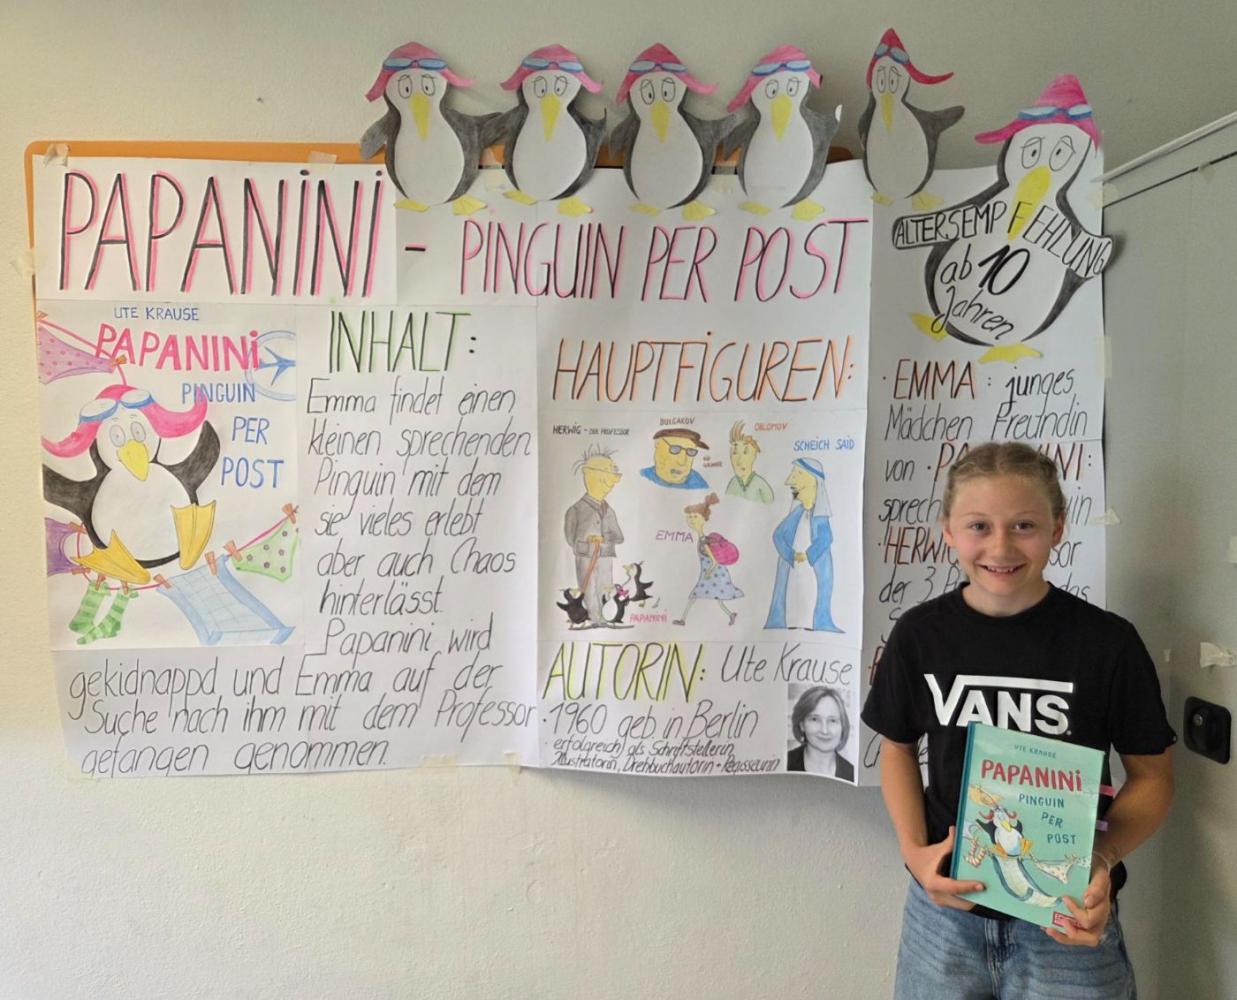 PAPANINI - PINGUIN PER POST
ALTERSEMPFEHLUNG
ab 10
Jahren
UTE KRAUSE
PAPANINI
PINGUIN
PER
POST
INHALT:
Emma findet einen
kleinen sprechenden
Pinguin mit dem
sie vieles erlebt
aber auch Chaos
hinterlässt.
Papanini wird
gekidnappd und Emma auf der
Suche nach ihm mit dem Professor
gefangen genommen.
HAUPTFIGUREN:
HERWIG - DER PROFESSOR
BULGAKOV
OBLOMOV
SCHEICH SAID
EMMA
PAPANINI
AUTORIN: Ute Krause
1960 geb. in Berlin
erfolgreich als Schriftstellerin
Illustratorin, Drehbuchautorin + Regisseurin
EMMA: junges
Mädchen Freundin
von
sprech
der 3
VANS
UTE KRAUSE
PAPANINI
PINGUIN
PER
POST